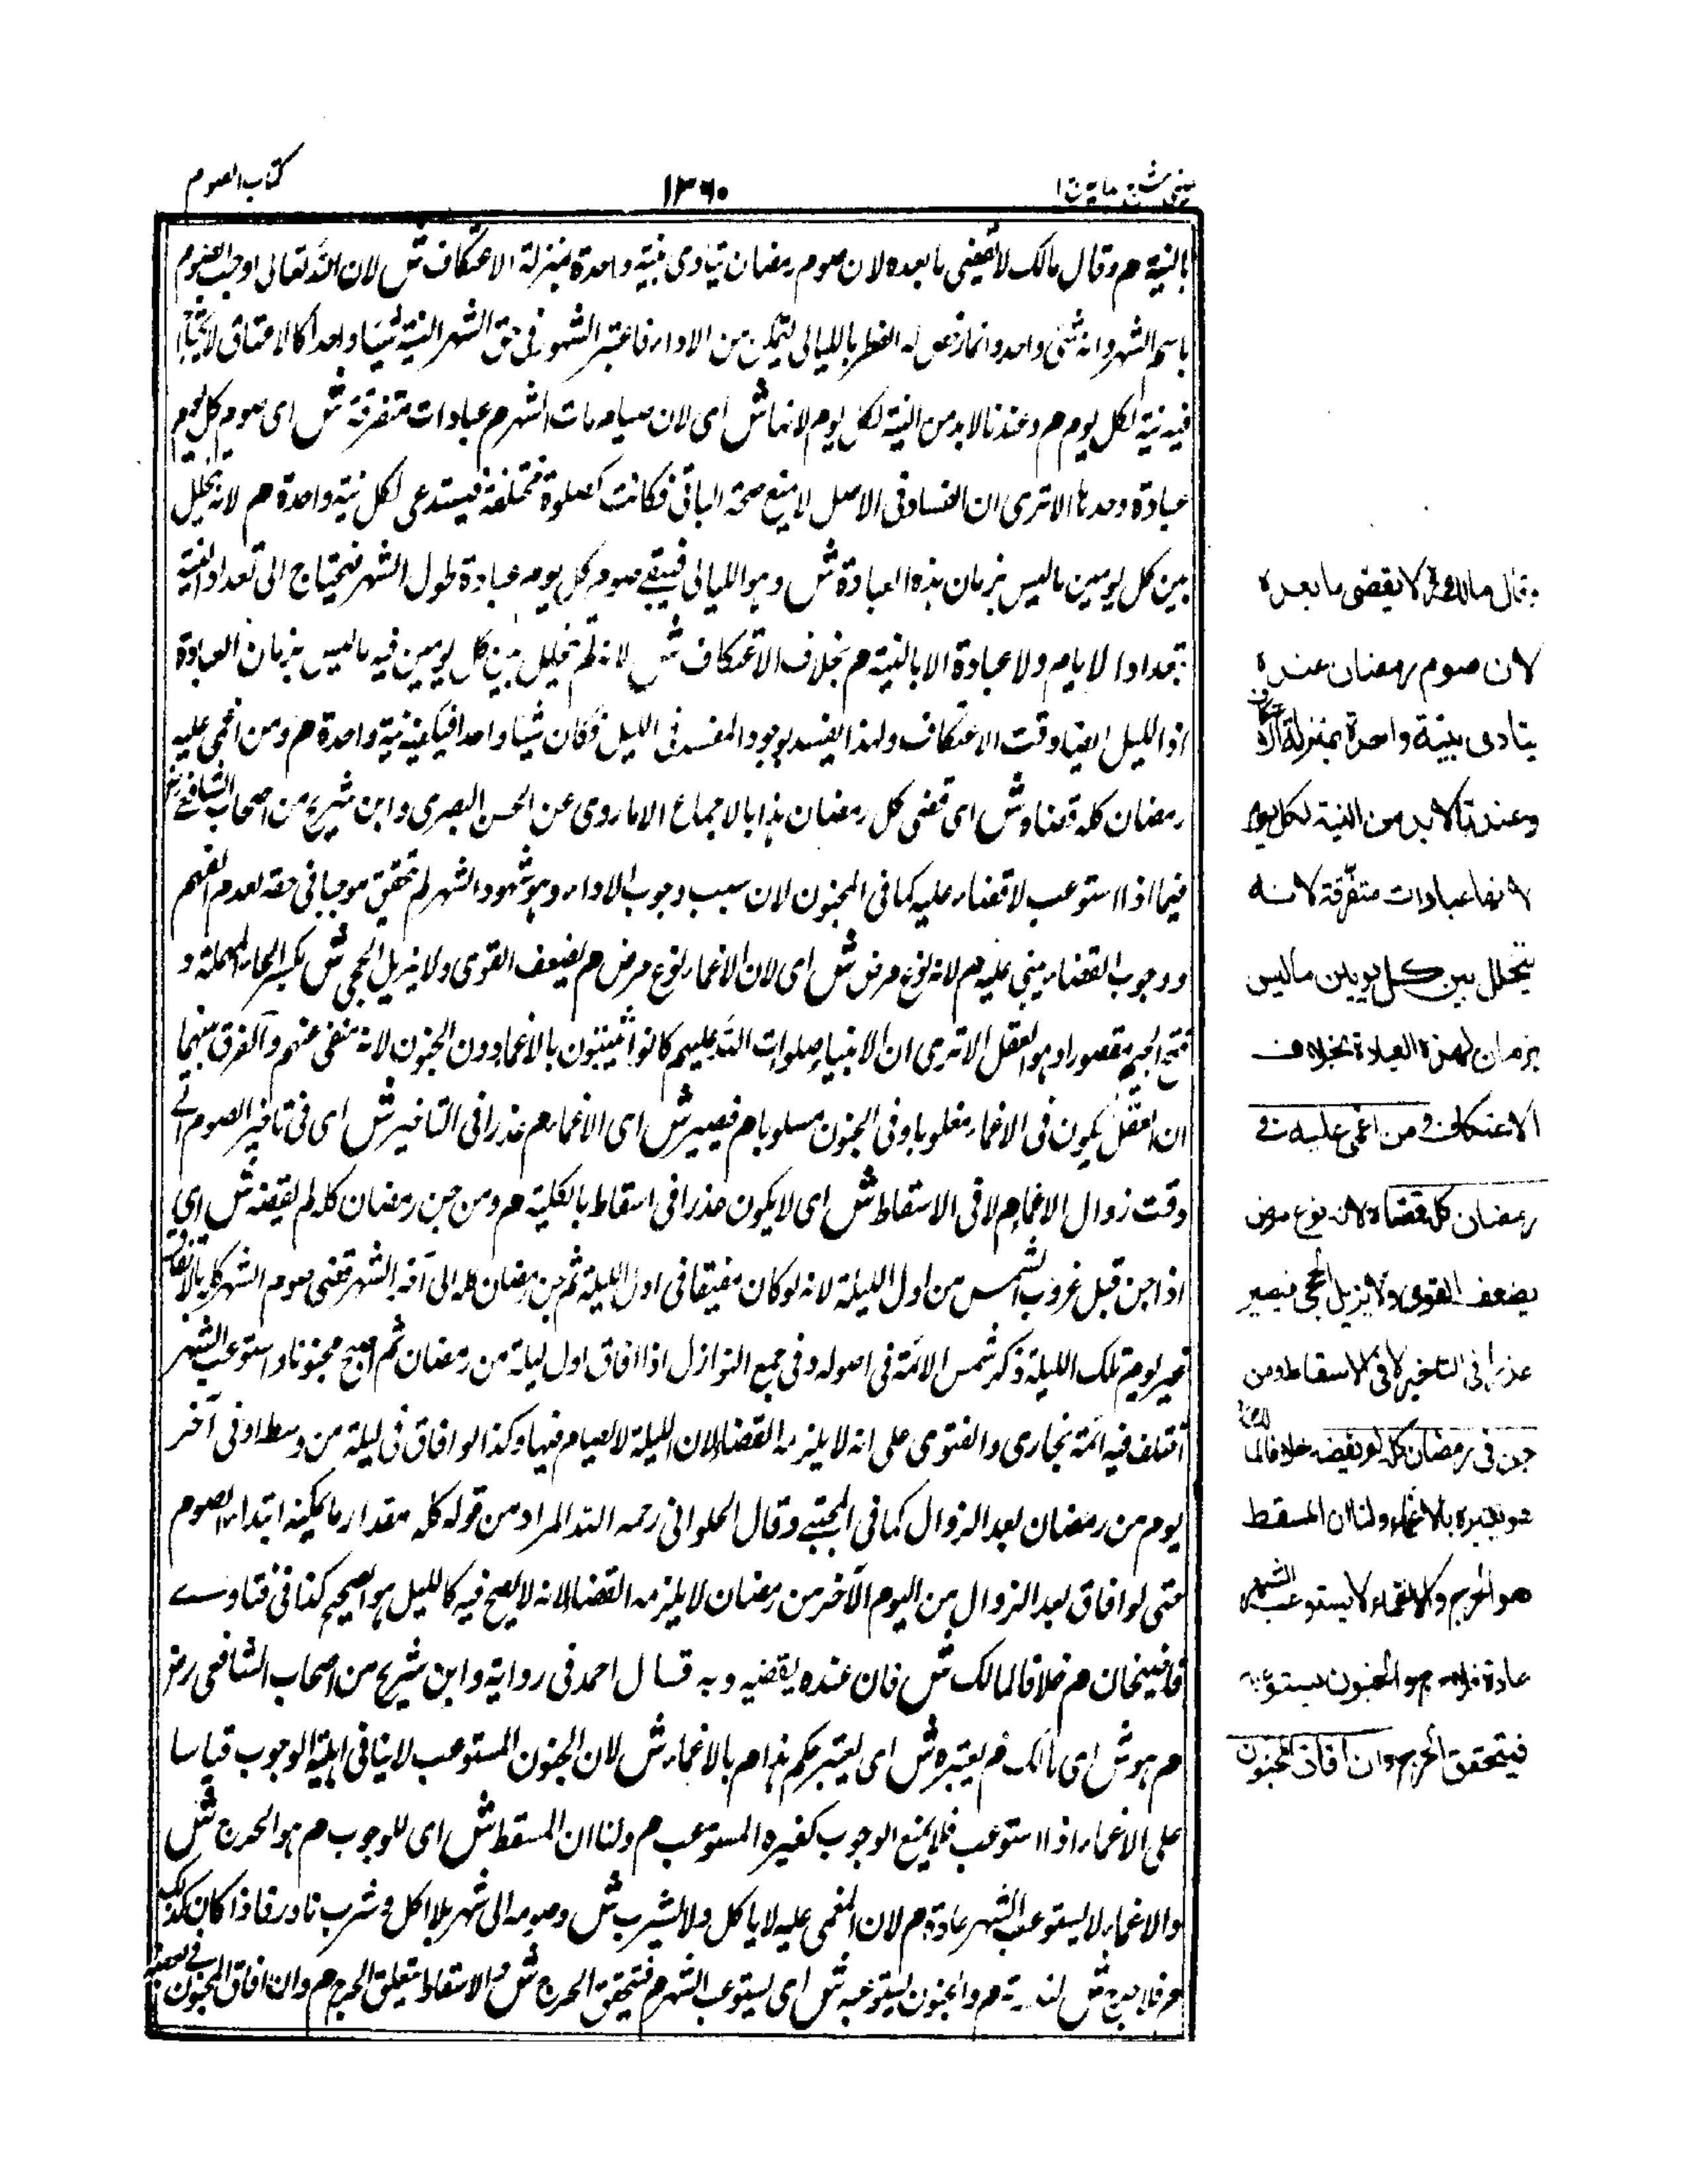 عینی شرح هدایة ج ۱
۱۳۶۰
كتاب الصوم
بالنیة م وقال مالك لا یقضی ما بعده لان صوم رمضان یتادی بنیة واحدة بمنزلة الاعتكاف ش لان الله تعالی اوجب الصوم
باسم الشهر وانه شئی واحد وانما رخص له الفطر باللیالی لیتمكن من الاداء فاعتبر الشهور فی حق الشهر النیة شیئا واحدا كالاعتاق لا یحتاج
فیه نیة لكل یوم م وعندنا لا بد من النیة لكل یوم لانها ش ای لان صیامات الشهر م عبادات متفرقة ش ای صوم كل یوم
عبادة وحدها الا تری ان الفساد فی الاصل لا یمنع صحة الباقی فكانت كصلوة مختلفة فیستدعی لكل نیة واحدة م لانه یتخلل
بین كل یومین ما لیس بزمان هذه العبادة ش وهو اللیالی فیبقے صوم كل یوم عبادة طول الشهر فیحتاج الی تعداد النیة
بتعداد الایام ولا عبادة الا بالنیة م بخلاف الاعتكاف ش لانه لم یتخلل بین كل یومین فیه ما لیس بزمان العبادة
اذ اللیل ایضا وقت الاعتكاف ولهذا یفسد بوجود المفسد فی اللیل فكان شیئا واحدا فیكفیه نیة واحدة م ومن اغمی علیه
رمضان كله قضاه ش ای قضی كل رمضان هذا بالاجماع الا ما روی عن الحسن البصری وابن شریح من اصحاب الشافعے رض
فیما اذا استوعب لا قضاء علیه كما فی المجنون لان سبب وجوب الاداء وهو شهود الشهر لم یتحقق موجبا فی حقه لعدم الفهم
ووجوب القضاء یبنی علیه م لانه نوع مرض ش ای لان الاغماء نوع مرض م یضعف القوی ولا یزیل الحجی ش بكسر الحاء المهملة و
فتح الجیم مقصورا وهو العقل الا تری ان الانبیاء صلوات الله علیهم كانوا یبتلون بالاغماء دون الجنون لانه منفی عنهم والفرق بینهما
ان العقل یكون فی الاغماء مغلوبا وفی الجنون مسلوبا م فیصیر ش ای الاغماء م عذرا فی التاخیر ش ای فی تاخیر الصوم الے
وقت زوال الاغماء م لا فی الاسقاط ش ای لا یكون عذرا فی اسقاط بالكلیة م ومن جن رمضان كله لم یقضه ش ای
اذا جن قبل غروب الشمس من اول اللیلة لانه لو كان مفیقا فی اول اللیلة ثم جن رمضان كله الی آخر الشهر قضی صوم الشهر كله بالاتفاق
غیر یوم تلك اللیلة ذكر شمس الائمة فی اصوله وفی جمع النوازل اذا افاق اول لیلة من رمضان ثم اصبح مجنونا واستوعب الشهر
اختلف فیه ائمة بخاری والفتوی علی انه لا یلزمه القضاء لان اللیلة لا یصام فیها وكذا لو افاق فی لیلة من وسط او فی آخر
یوم من رمضان بعد الزوال كما فی المجتبے وقال الحلوانی رحمه الله المراد من قوله كله مقدار ما یمكنه ابتداء الصوم
حتی لو افاق بعد الزوال من الیوم الآخر من رمضان لا یلزمه القضاء لانه لا یصح فیه كاللیل هو الصحیح كذا فی فتاوے
قاضیخان م خلافا لمالك ش فان عنده یقضیه وبه قال احمد فی روایة وابن شریح من اصحاب الشافعی رض
م هو ش ای مالك م یعتبره ش ای یعتبر حكم هذا م بالاغماء ش لان الجنون المستوعب لا ینافی اهلیة الوجوب قیاسا
علی الاغماء اذا استوعب فلا یمنع الوجوب كغیره المستوعب م ولنا ان المسقط ش ای للوجوب م هو الحرج ش
والاغماء لا یستوعب الشهر عادة م لان المغمی علیه لا یاكل ولا یشرب ش وصومه الی شهر بلا اكل وشرب نادر فاذا كان كذلك
م فلا حرج ش لندرته م والجنون یستوعبه ش ای یستوعب الشهر م فیتحقق الحرج ش والاسقاط یتعلق بالحرج م وان افاق المجنون فے بعضه
وقال مالك لا یقضی ما بعده
لان صوم رمضان عنده
یتادی بنیة واحدة بمنزلة الاعتكاف
وعندنا لا بد من النیة لكل یوم
لانها عبادات متفرقة لانه
یتخلل بین كل یومین ما لیس
بزمان لهذه العبادة بخلاف
الاعتكاف ومن اغمی علیه فی
رمضان كله قضاه لانه نوع مرض
یضعف القوی ولا یزیل الحجی فیصیر
عذرا فی التاخیر لا فی الاسقاط ومن
جن فی رمضان كله لم یقضه خلافا لمالك
هو یعتبره بالاغماء ولنا ان المسقط
هو الحرج والاغماء لا یستوعب الشهر
عادة فلا حرج والجنون یستوعبه
فیتحقق الحرج وان افاق المجنون